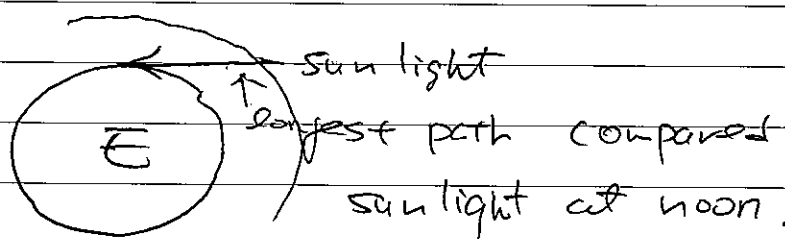 sunlight
E longest path compared
sunlight at noon.